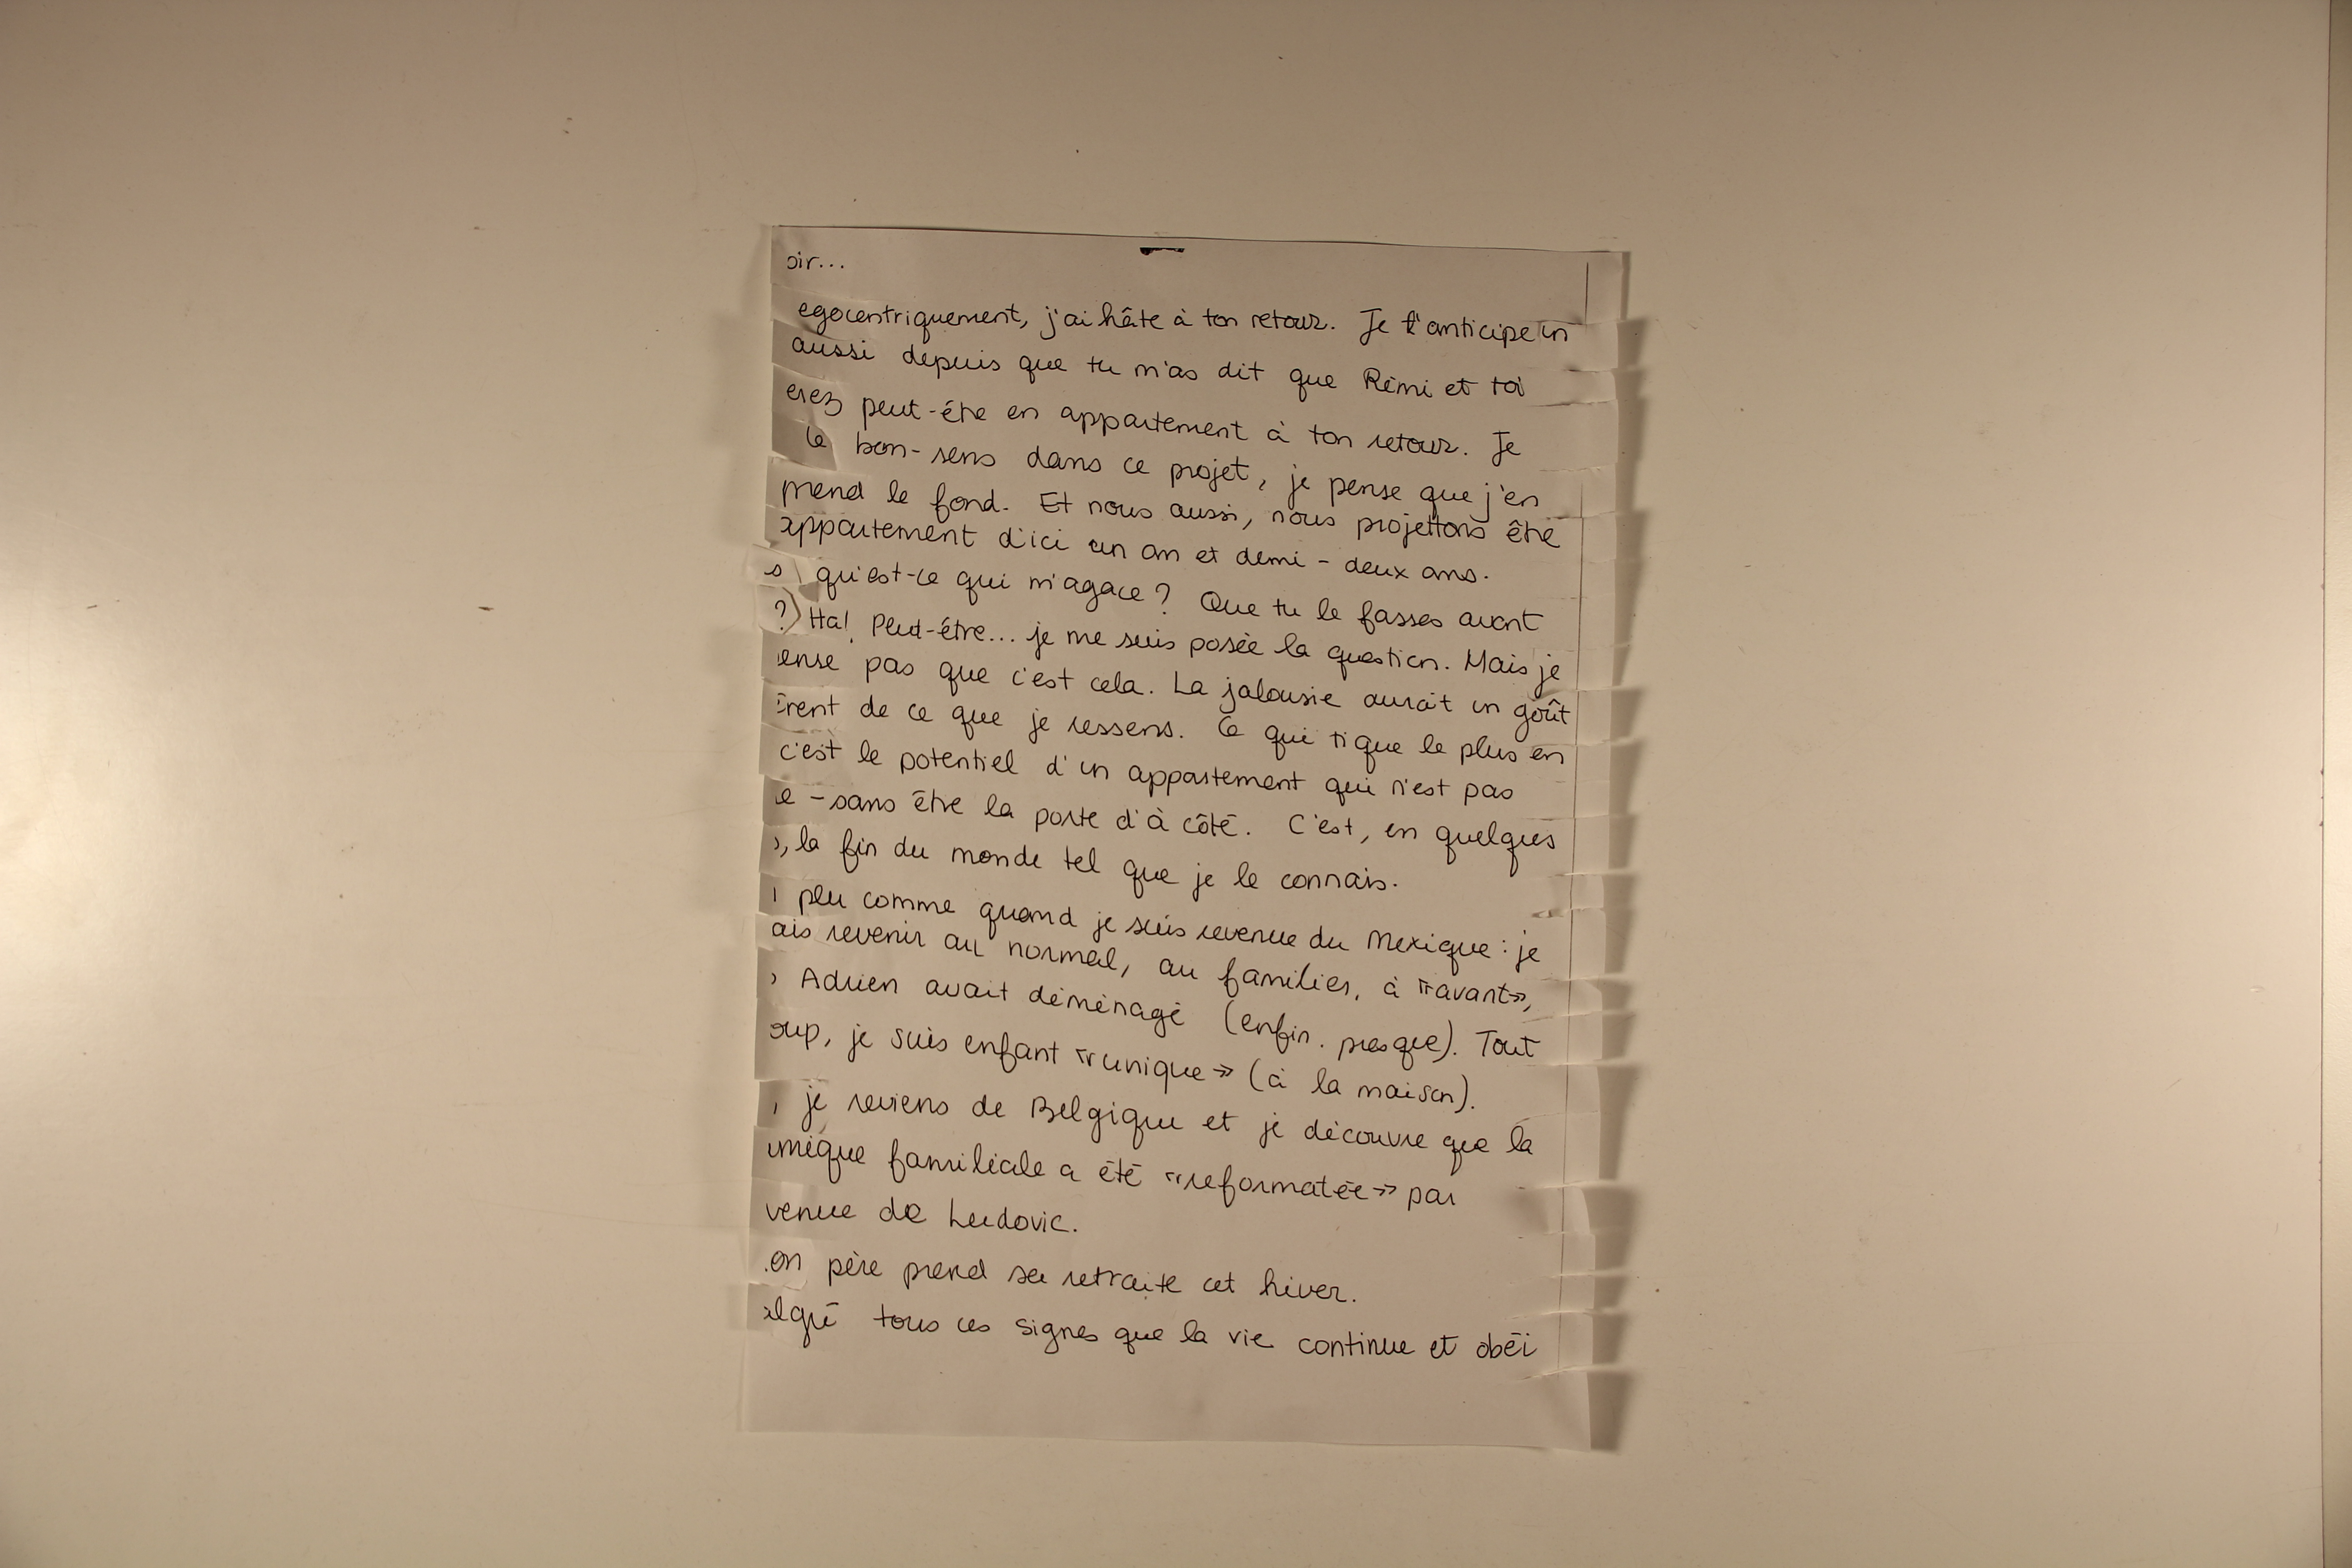 oir...
egocentriquement, j'ai hâte à ton retour. Je l'anticipe un
aussi depuis que tu m'as dit que Rémi et toi
erez peut-être en appartement à ton retour. Je
le bon-sens dans ce projet, je pense que j'en
prend le fond. Et nous aussi, nous projettons être
appartement d'ici un an et demi - deux ans.
s qu'est-ce qui m'agace ? Que tu le fasses avant
?) Ha! Peut-être... je me suis posée la question. Mais je
ense pas que c'est cela. La jalousie aurait un goût
érent de ce que je ressens. Ce qui tique le plus en
c'est le potentiel d'un appartement qui n'est pas
e - sans être la porte d'à côté. C'est, en quelques
s, la fin du monde tel que je le connais.
n peu comme quand je suis revenue du Mexique : je
ais revenir au normal, au familier, à «avant»,
s Adrien avait déménagé (enfin. presque). Tout
oup, je suis enfant «unique» (à la maison).
, je reviens de Belgique et je découvre que la
amique familiale a été «reformatée» par
venue de Ludovic.
on père prend sa retraite cet hiver.
algré tous ces signes que la vie continue et obéi